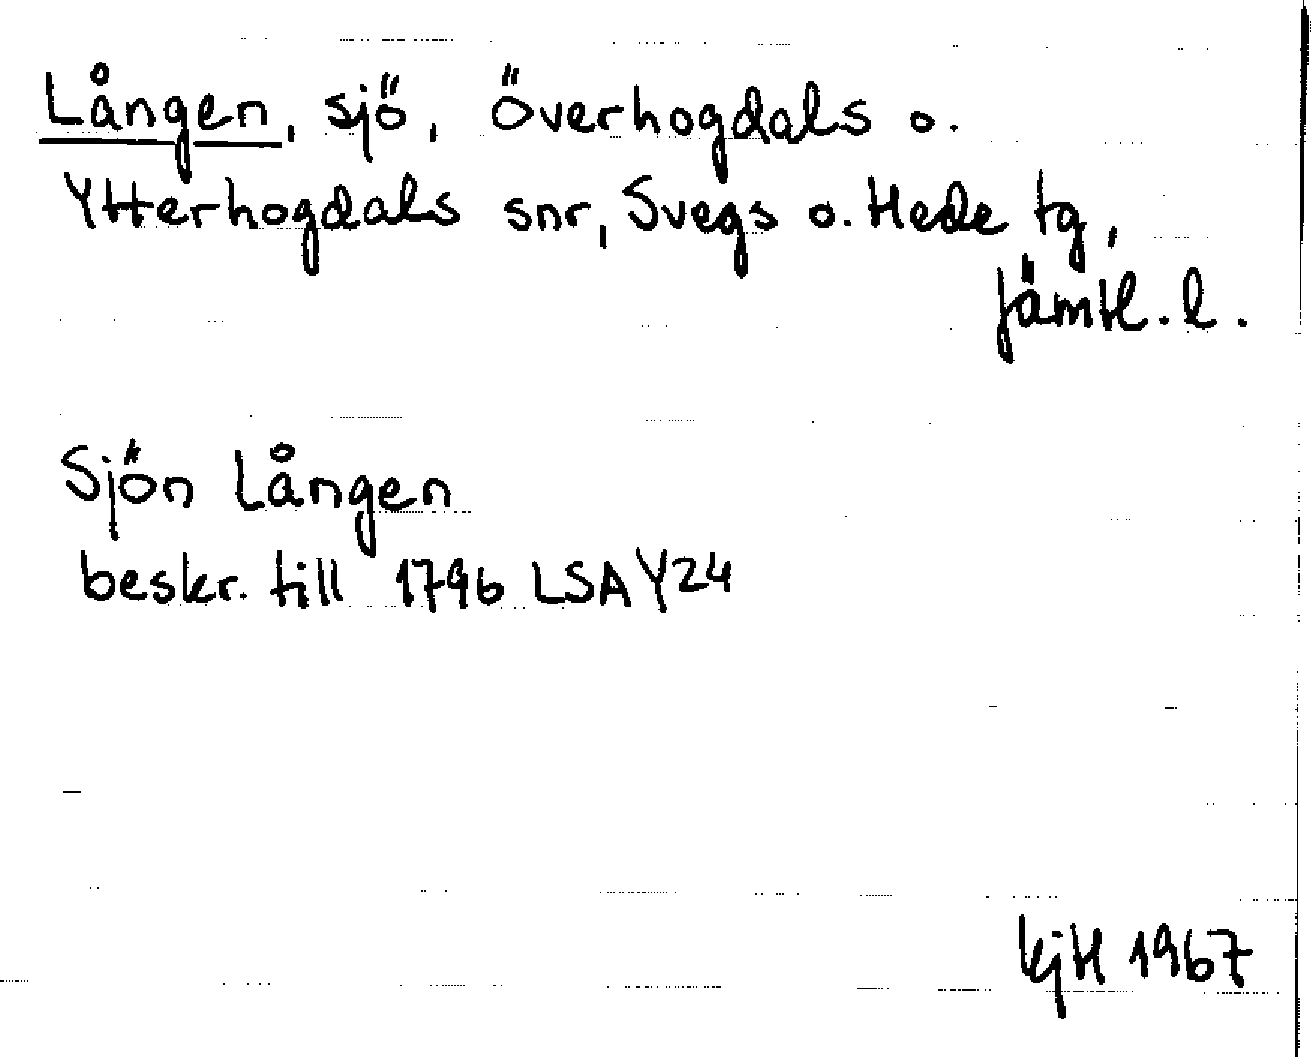 Lången, sjö, Överhogdals o.
Ytterhogdals snr, Svegs o. Hede tg,
Jämtl. l.
Sjön Lången
beskr. till 1796 LSA Y24
KjH 1967